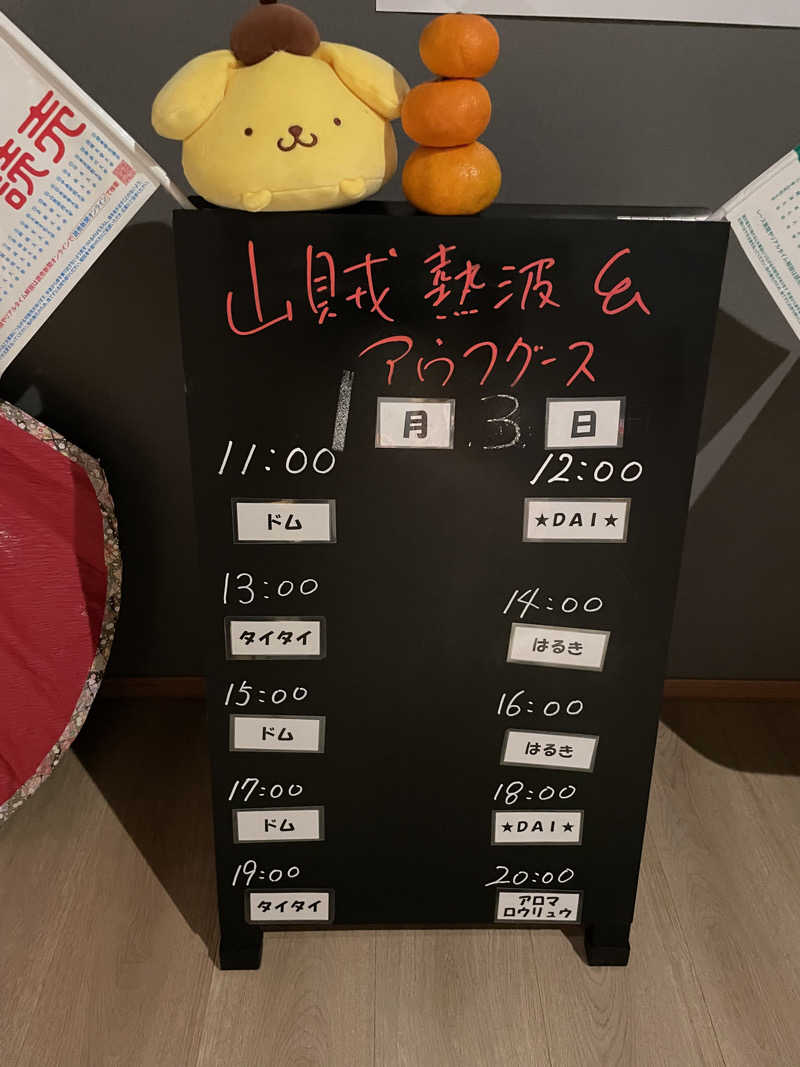 読売
山賊熱波&
アウフグース
1月3日
11:00 12:00
ドム ★DAI★
13:00 14:00
タイタイ はるき
15:00 16:00
ドム はるき
17:00 18:00
ドム ★DAI★
19:00 20:00
タイタイ アロマ
ロウリュウ